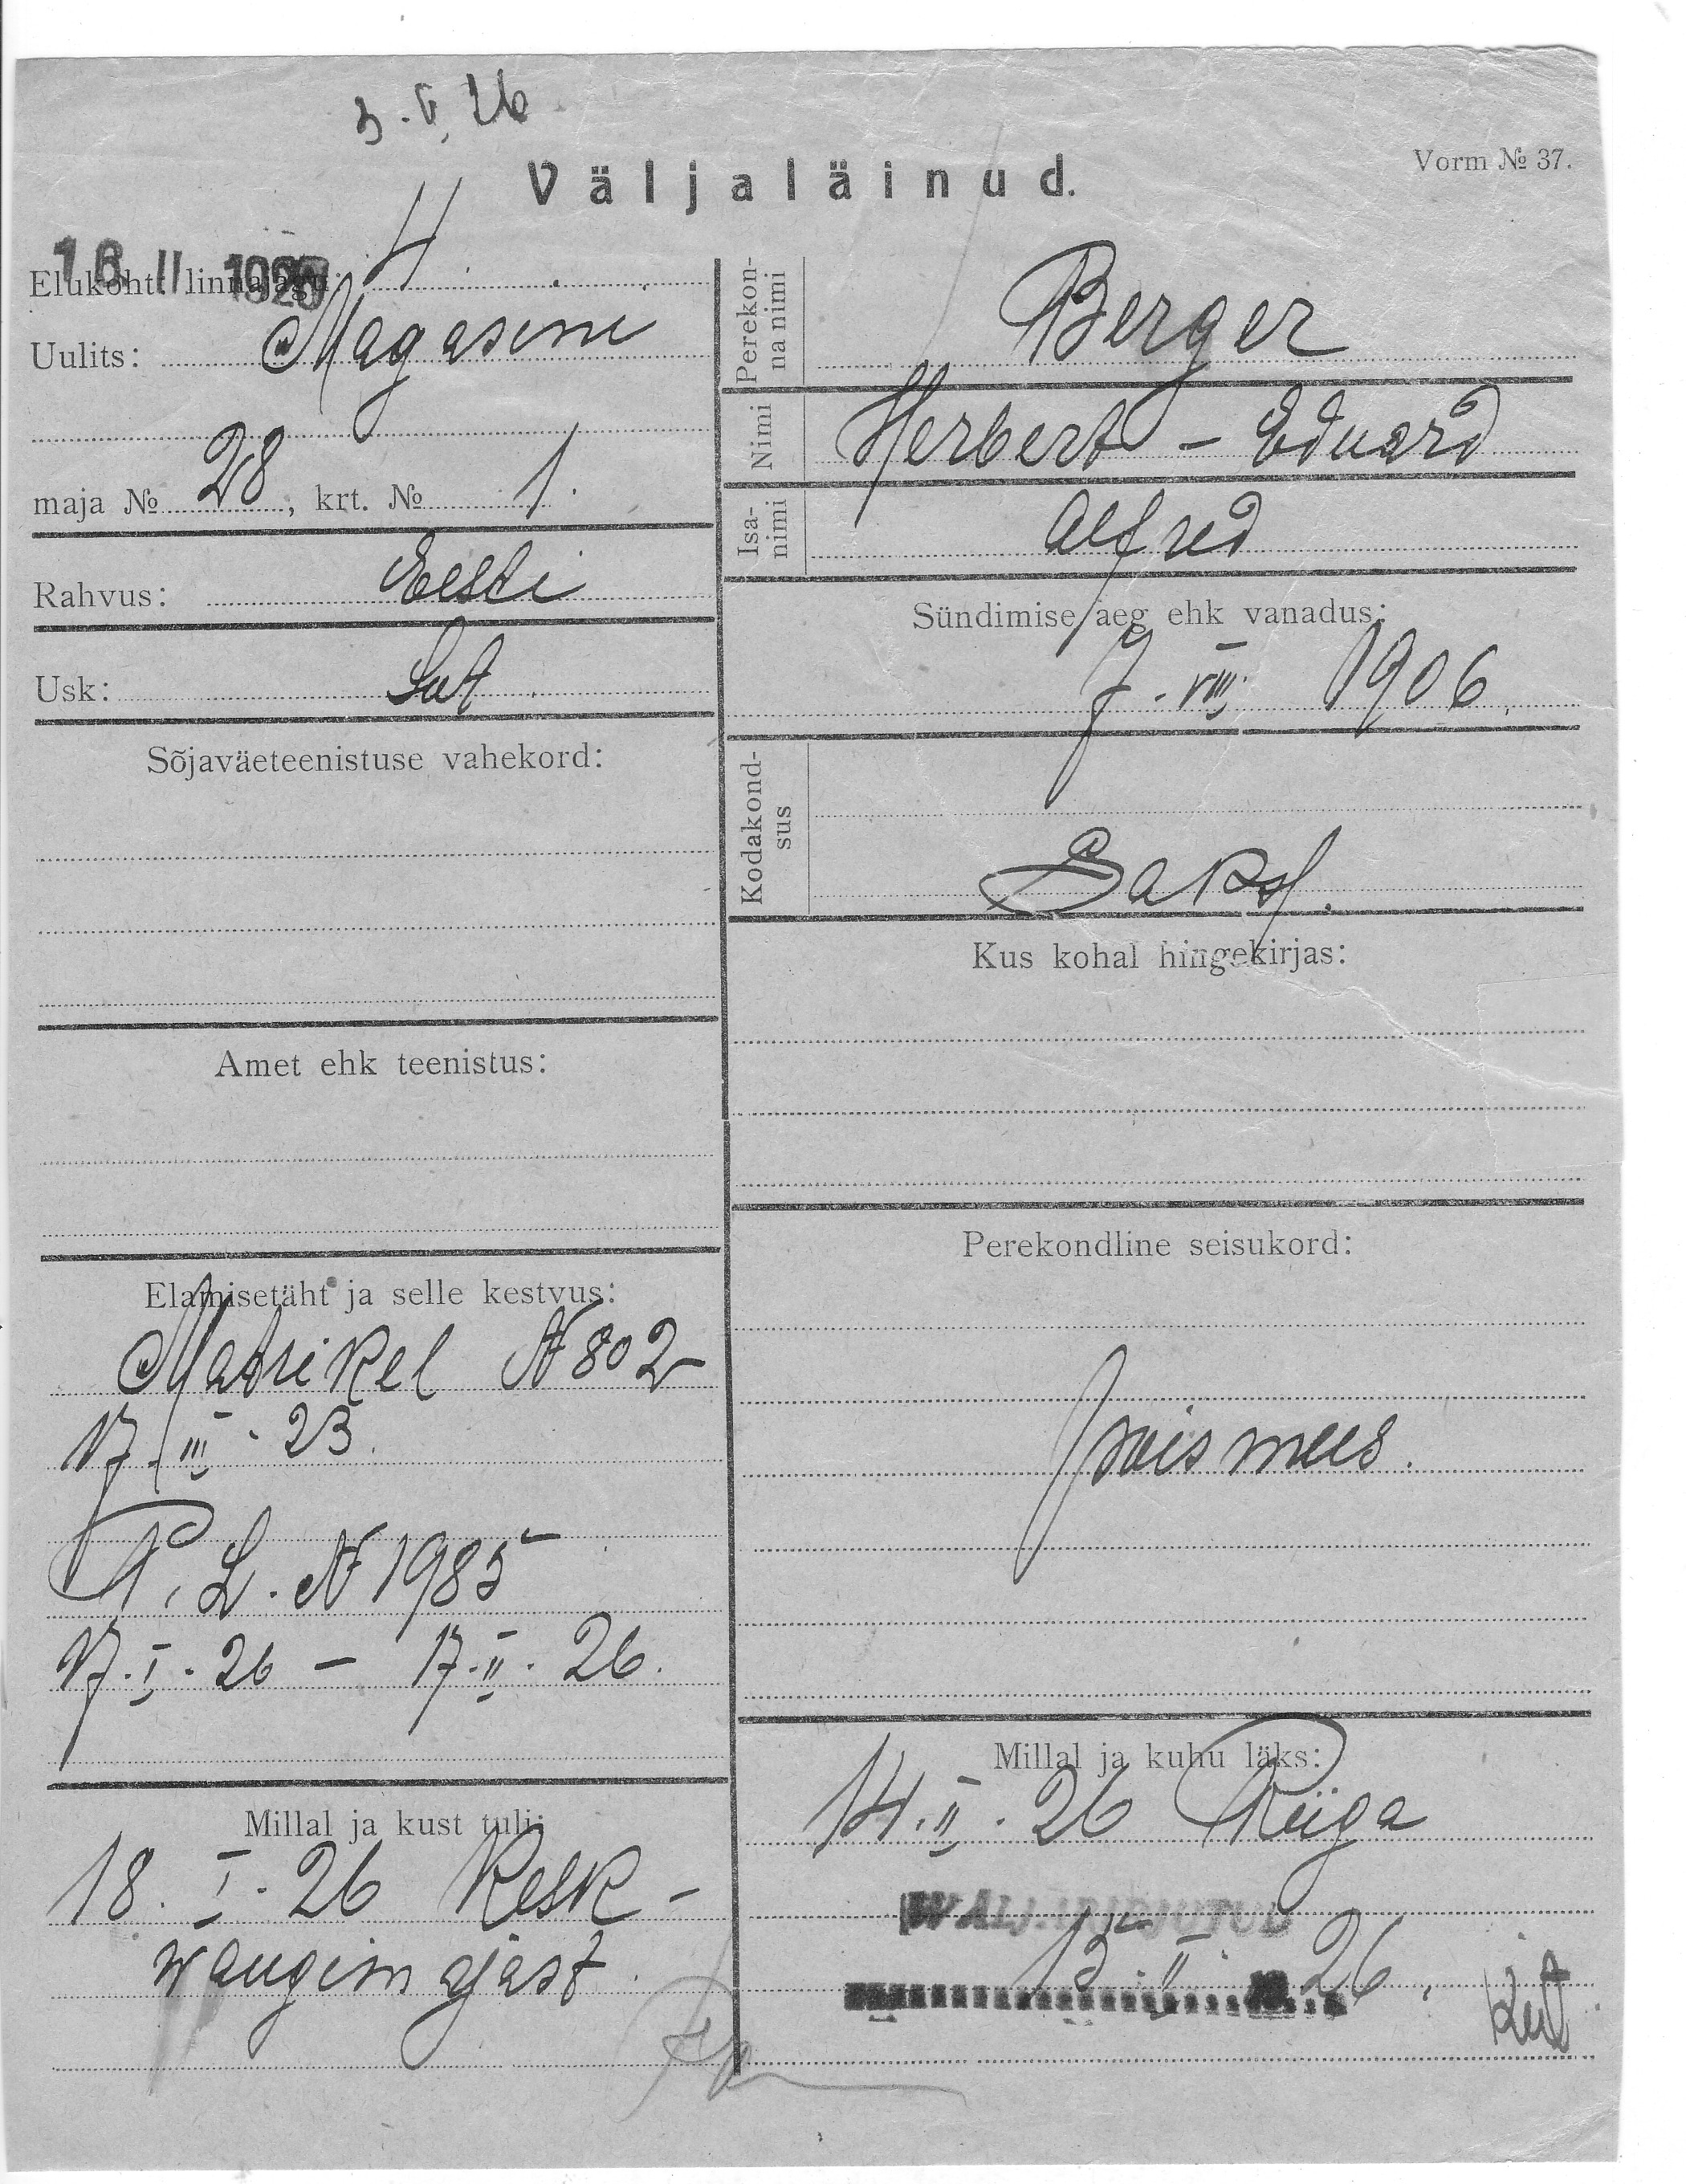 3.V.26
Väljaläinud.
Vorm № 37.
16 II 1926
Elukoht: linnajagu: 4
Uulits: Magasini
maja № 28, krt. № 1.
Rahvus: Eesti
Usk: Lut
Sõjaväeteenistuse vahekord:
Amet ehk teenistus:
Elamisetäht ja selle kestvus:
Matrikel N 802
17.III.23.
T. L. N 1985
17.I.26 – 17.II.26.
Millal ja kust tuli:
18.I.26 Kesk-
wangimajast.
Perekon-
na nimi
Berger
Nimi
Herbert – Eduard
Isa-
nimi
Alfred
Sündimise aeg ehk vanadus:
7.VIII. 1906.
Kodakond-
sus
Saksa.
Kus kohal hingekirjas:
Perekondline seisukord:
poismees.
Millal ja kuhu läks:
14.II.26 Riiga
WÄLJAKIRJUTUD
15.II.26.